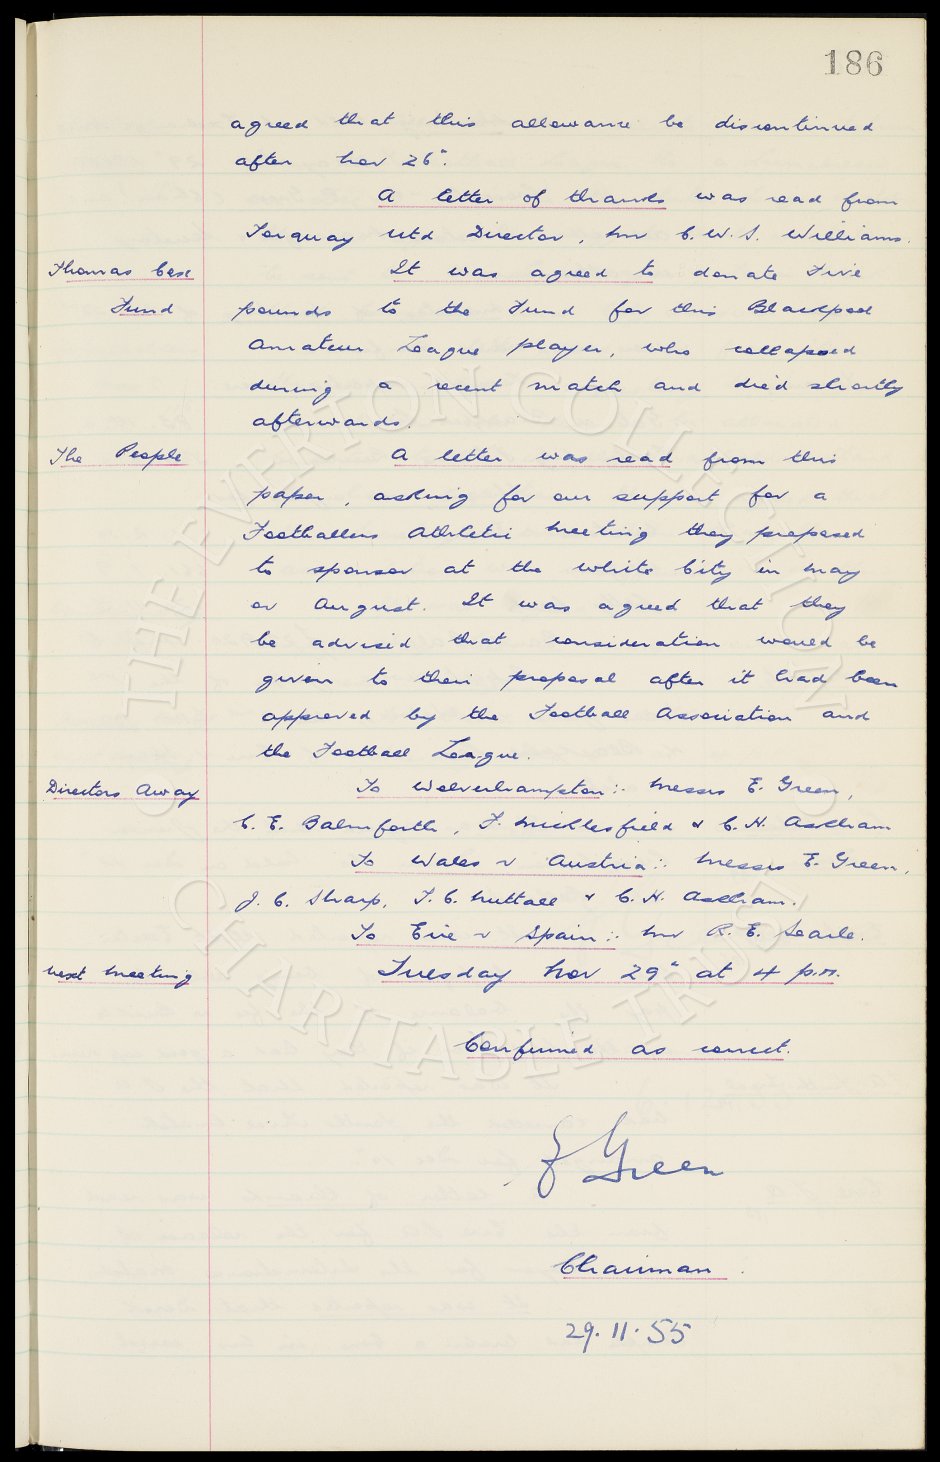 186
agreed that this allowance be discontinued
after Nov 26".
A letter of thanks was read from
Torquay Utd Director, Mr C.W.S. Williams.
Thomas Case It was agreed to donate Five
Fund pounds to the Fund for this Blackpool
Amateur League player, who collapsed
during a recent match and died shortly
afterwards.
The People A letter was read from this
paper, asking for our support for a
Footballers Athletic Meeting they proposed
to sponsor at the White City in May
or August. It was agreed that they
be advised that consideration would be
given to their proposal after it had been
approved by the Football Association and
the Football League.
Directors Away To Wolverhampton:- Messrs E. Green,
C. E. Balmforth, F. Micklesfield & C. H. Askham
To Wales v Austria:- Messrs E. Green,
J. C. Sharp, T. C. Nuttall & C. H. Askham.
To Eire v Spain:- Mr R. E. Searle.
Next Meeting Tuesday Nov 29" at 4 p.m.
Confirmed as correct.
E Green
Chairman.
29.11.55
THE EVERTON COLLECTION
CHARITABLE TRUST